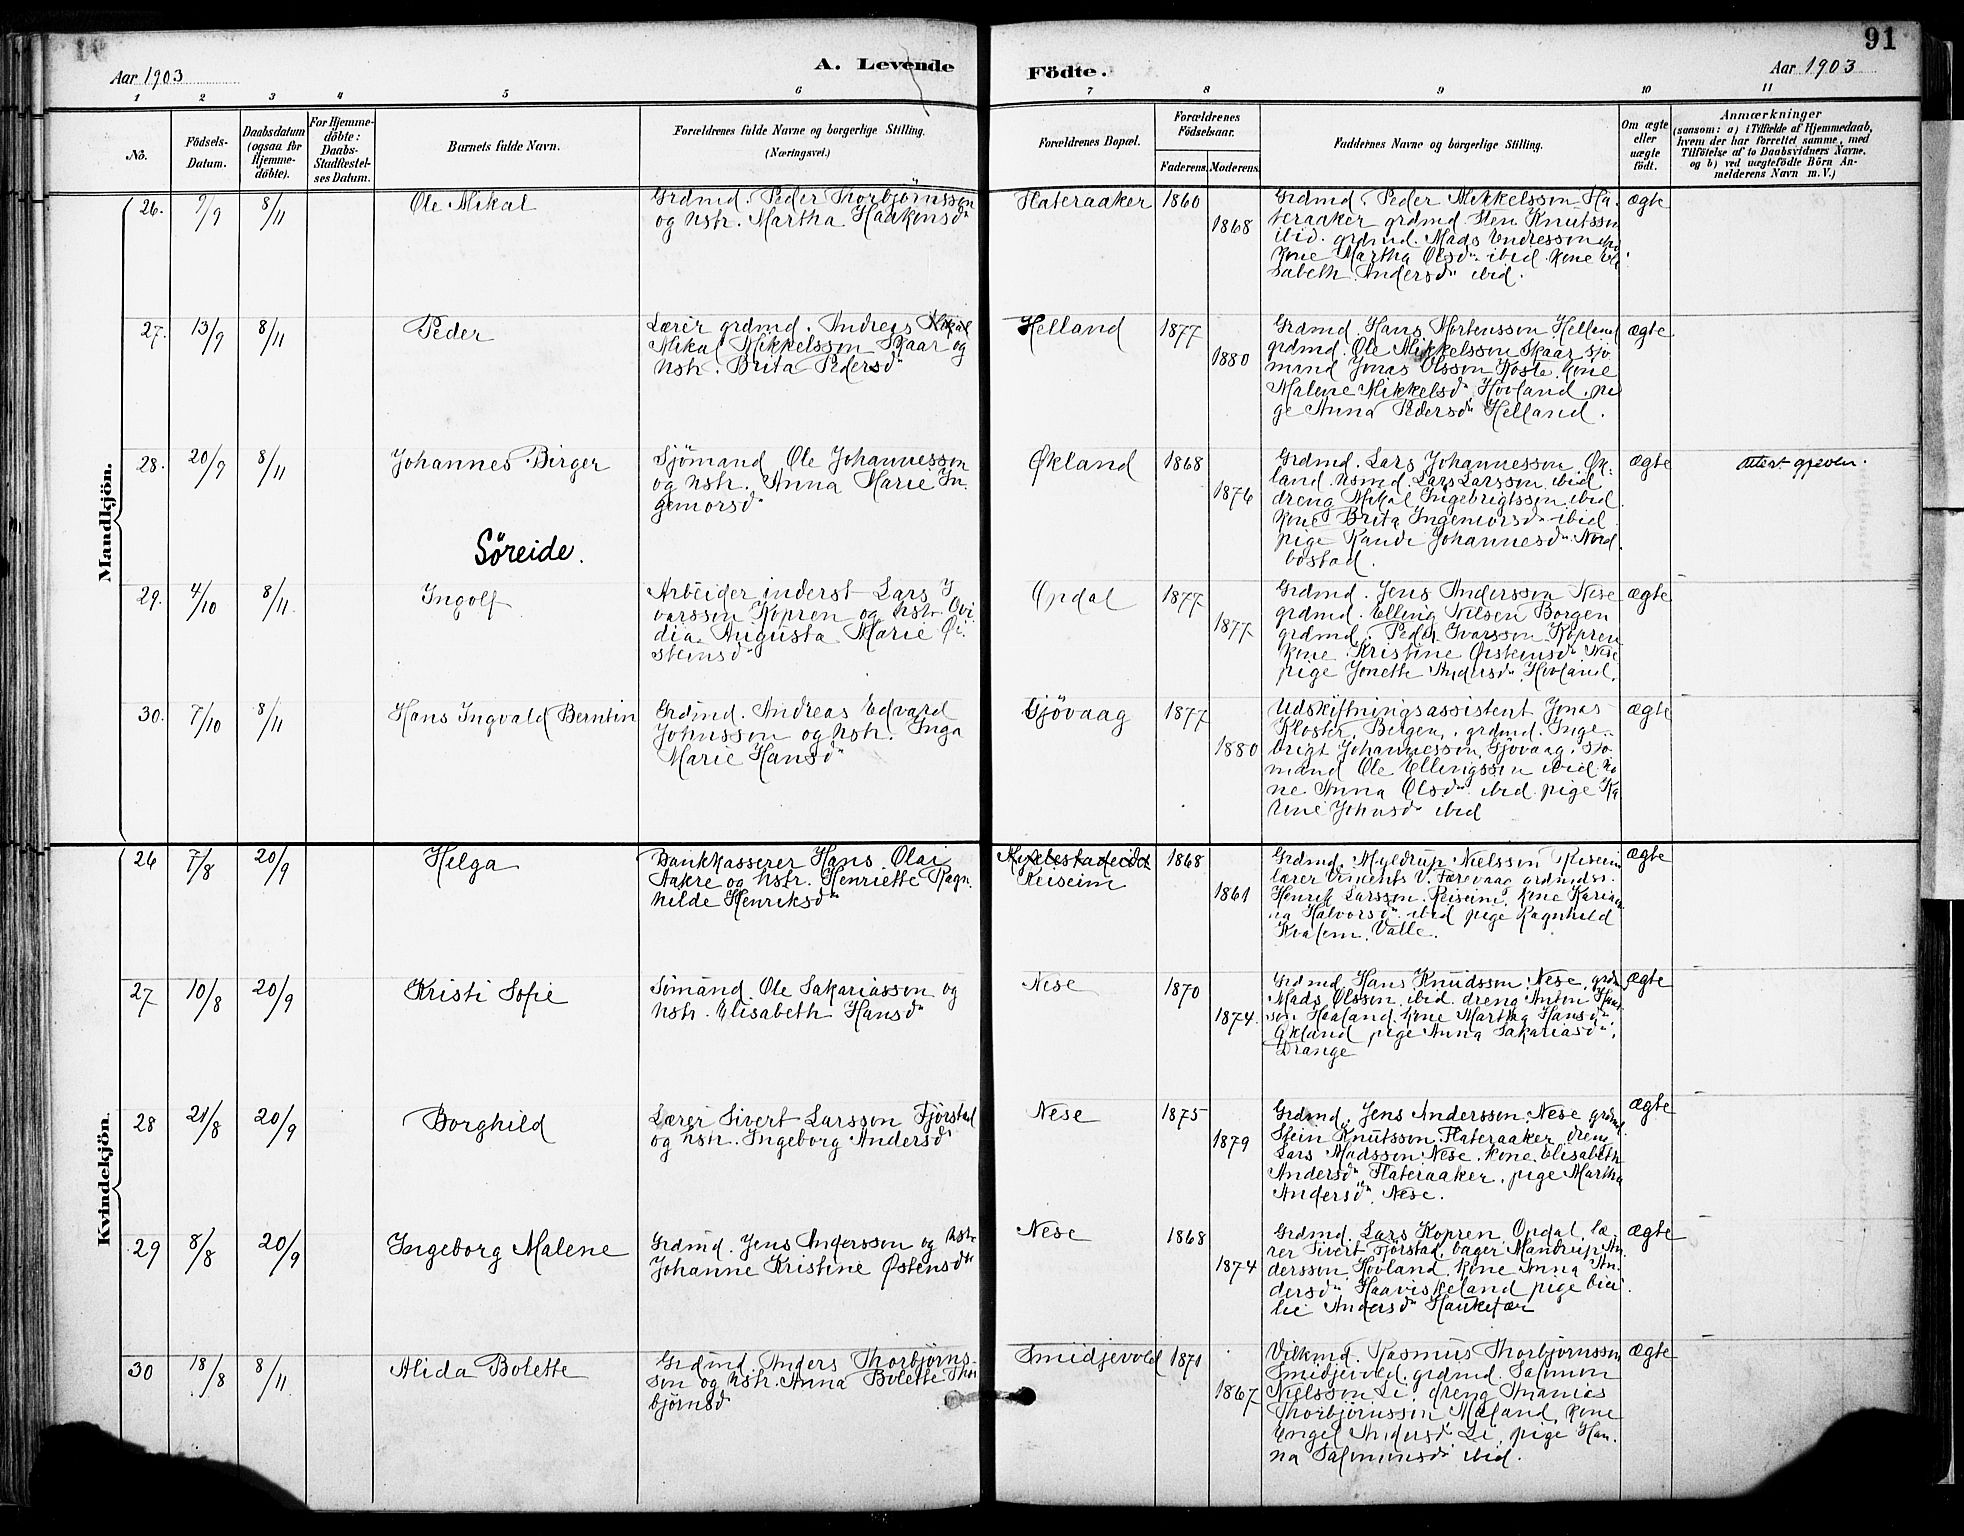 91
Aar 1903
A. Levende
Födte.
Aar 1903
1 2 3 4 5 6 7 8 9 10 11
No.
Födsels-
Datum.
Daabsdatum
(ogsaa for
Hjemme-
döbte).
For Hjemme-
döbte:
Daabs-
Stadfæstel-
ses Datum.
Barnets fulde Navn.
Forældrenes fulde Navne og borgerlige Stilling.
(Næringsvei.)
Forældrenes Bopæl.
Forældrenes
Födselsaar.
Faderens. Moderens.
Faddernes Navne og borgerlig Stilling.
Om ægte
eller
uægte
födt.
Anmærkninger
(saasom: a) i Tilfælde af Hjemmedaab,
hvem der har forrettet samme, med
Tilföielse af to Daabsvidners Navne,
og b) ved uægtefödte Börn An-
melderens Navn m. V.)
Mandkjön.
26. 9/9 8/11 Ole Mikal
Grdmd. Peder Thorbjörnsson
og hstr. Martha Haakonsdr
Flateraaker 1860
1868
Grdmd Peder Mikkelsson Fla-
teraaker grdmd Sten Knutsson
ibid. grdmd. Mads Endresson ibid
kone Martha Olsdr ibid. kone Eli
sabeth Andersdr ibid.
ægte
27. 13/9 8/11 Peder
Lærer grdmd. Andreas Mikal
Mikal Mikkelsson Skaar og
hstr. Brita Pedersdr
Helland 1877
1880
Grdmd. Hans Mortensson Helland
grdmd. Ole Mikkelsson Skaar sjö
mand Jonas Olsson Koste kone
Malene Mikkelsdr Hovland, pi
ge Anna Pedersdr Helland.
ægte
28. 20/9 8/11 Johannes Birger
Sjömand Ole Johannesson
og hstr. Anna Marie In-
gemorsdr
Søreide.
Økland 1868
1876
Grdmd. Lars Johannesson Øk-
land. hsmd. Lars Larsson ibid
dreng Mikal Ingebrigtsson ibid
kone Brita Ingemorsdr ibid
pige Randi Johannesdr Nord
bostad.
ægte
Attest gjeven.
29. 4/10 8/11 Ingolf
Arbeider inderst Lars I
varsson Kopren og hstr. Ovi
dia Augusta Marie Öi-
steinsdr
Opdal 1877
1877
Grdmd. Jens Andersson Nese
grdmd. Elling Nilsen Borgen
grdmd. Peder Ivarsson Kopren
kone Kristine Öisteinsdr Nese
pige Jonette Andersdr Hovland.
ægte
30. 7/10 8/11 Hans Ingvald Berntin
Grdmd. Andreas Edvard
Johnsson og hstr. Inga
Marie Hansdr
Gjövaag 1877
1880
Udskiftningsassistent Jonas
Kloster, Bergen, grdmd. Inge-
brigt Johannesson Gjövaag, sjö
mand Ole Ellingsson ibid ko
ne Anna Olsdr ibid pige Ka
trine Johnsdr ibid
ægte
Kvindekjön.
26 7/8 20/9 Helga
Bankkasserer Hans Olai
Aakre og hstr. Henriette Ragn-
hilde Henriksdr
Reiseim 1868
1861
Grdmd. Myldrup Nielsson Reiseim
lærer Vincents V. Færevaag grdmds.
Henrik Larsson Reiseim, kone Karian
na Halvorsdr ibid pige Ragnhild
Kvalem, Valle.
ægte
27 10/8 20/9 Kristi Sofie
Sömand Ole Sakariasson og
hstr. Elisabeth Hansdr
Nese 1870
1874.
Grdmd Hans Knudsson Nese, grdm
Mads Olsson ibid. dreng Anton Hans
son Haaland kone Martha Hansdr
Økland pige Anna Sakariasdr,
Drange
ægte
28 21/8 20/9 Borghild
Lærer Sivert Larsson Fjörstad
og hstr. Ingeborg Andersdr
Nese 1875
1879
Grdmd. Jens Andersson Nese grdmd.
Stein Knutsson Flateraaker dreng
Lars Madsson Nese kone Elisabeth
Andersdr Flateraaker, pige Martha
Andersdr Nese.
ægte
29 8/8 20/9 Ingeborg Malene
Grdmd. Jens Andersson og hstr
Johanne Kristine Østensdr
Nese 1868
1874
Grdmd. Lars Kopren Opdal, læ-
rer Sivert Fjörstad, bager Mandrup An-
dersson Hovland kone Anna An-
dersdr Haaviskeland pige Ceci-
lie Andersdr Hankefær
ægte
30 18/8 8/11 Alida Bolette
Grdmd. Anders Thorbjörns-
son og hstr. Anna Bolette Thor
björnsd
Smidjevold 1871
1867
Vilkmd. Rasmus Thorbjörnsson
Smidjevold. grdmd. Salomon
Nielsson Li, dreng Ananias
Thorbjörnsson Maland, kone
Engel Andersdr Li, pige Han-
na Salomonsdr ibid.
ægte